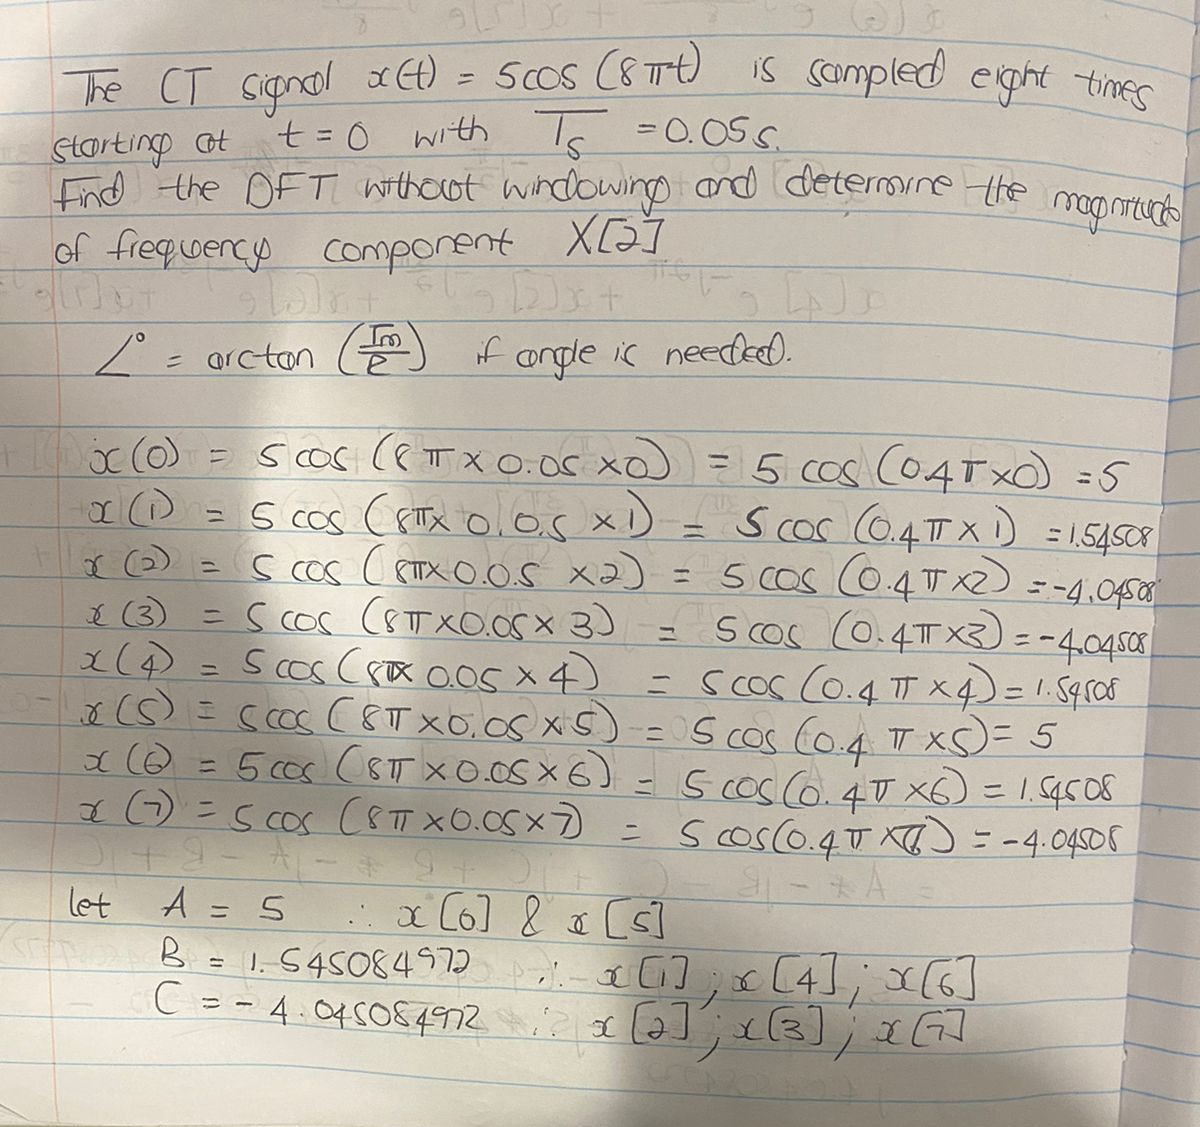 The CT signal x(t) = 5cos (8πt) is sampled eight times
starting at t = 0 with Ts = 0.05s.
Find the DFT without windowing and determine the magnitude
of frequency component X[2]
∠° = arctan (Im/R) if angle is needed.
x(0) = 5 cos (8π x 0.05 x0) = 5 cos (0.4π x0) = 5
x(1) = 5 cos (8πx 0.05 x1) = 5 cos (0.4π x 1) = 1.54508
x(2) = 5 cos (8πx0.05 x2) = 5 cos (0.4π x2) = -4.04508
x(3) = 5 cos (8πx0.05x 3) = 5 cos (0.4π x3) = -4.04508
x(4) = 5 cos (8πx 0.05 x 4) = 5 cos (0.4 π x4) = 1.54508
x(5) = 5 cos (8π x0.05 x5) = 5 cos (0.4 π x5) = 5
x(6) = 5 cos (8π x0.05x6) = 5 cos(0.4π x6) = 1.54508
x(7) = 5 cos (8π x0.05x7) = 5 cos(0.4π x7) = -4.04508
let A = 5 ∴ x[0] & x[5]
B = 1.545084972 ∴ x[1]; x[4]; x[6]
C = -4.045084972 ∴ x[2]; x[3]; x[7]